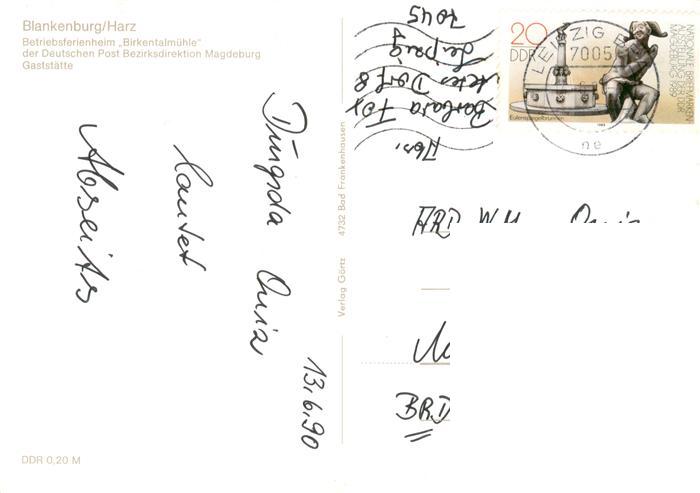 Blankenburg/Harz
Betriebsferienheim „Birkentalmühle"
der Deutschen Post Bezirksdirektion Magdeburg
Gaststätte
lautet
Abseits
13.6.90
DDR 0,20 M
Verlag Görtz 4732 Bad Frankenhausen
Abs.
Barbara Fox
Dorf 8
Leipzig
7045
20
DDR
NATIONALE BRIEFMARKEN-
AUSSTELLUNG DER DDR
MAGDEBURG 1989
Eulenspiegelbrunnen
1989
LEIPZIG BPA
7005
ne
ARD WM Quiz
BRD